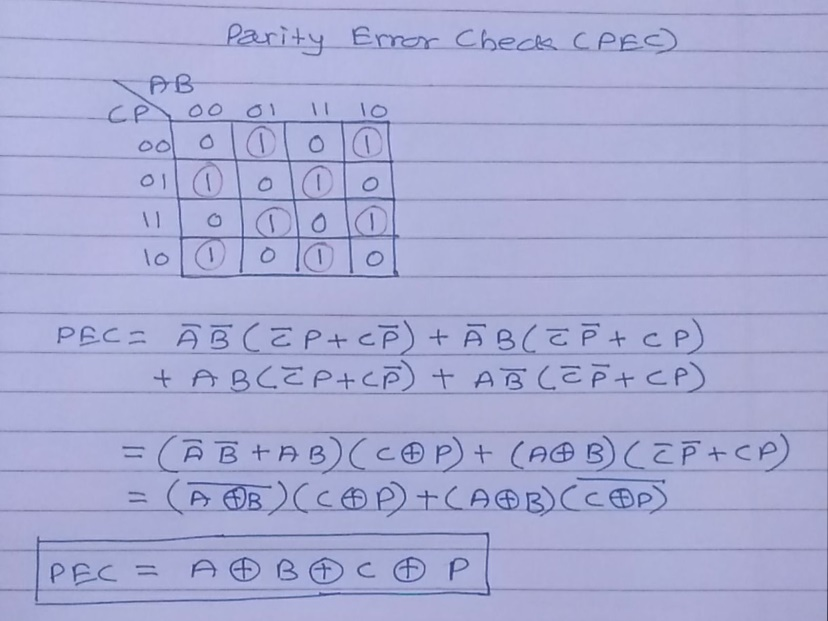 Parity Error Check (PEC)
AB
CP 00 01 11 10
00 0 1 0 1
01 1 0 1 0
11 0 1 0 1
10 1 0 1 0
PEC = A̅ B̅ (C̅ P + C P̅) + A̅ B (C̅ P̅ + C P)
+ A B (C̅ P + C P̅) + A B̅ (C̅ P̅ + C P)
= (A̅ B̅ + A B) (C ⊕ P) + (A ⊕ B) (C̅ P̅ + C P)
= (A̅ ⊕̅ B̅) (C ⊕ P) + (A ⊕ B) (C̅ ⊕̅ P̅)
PEC = A ⊕ B ⊕ C ⊕ P